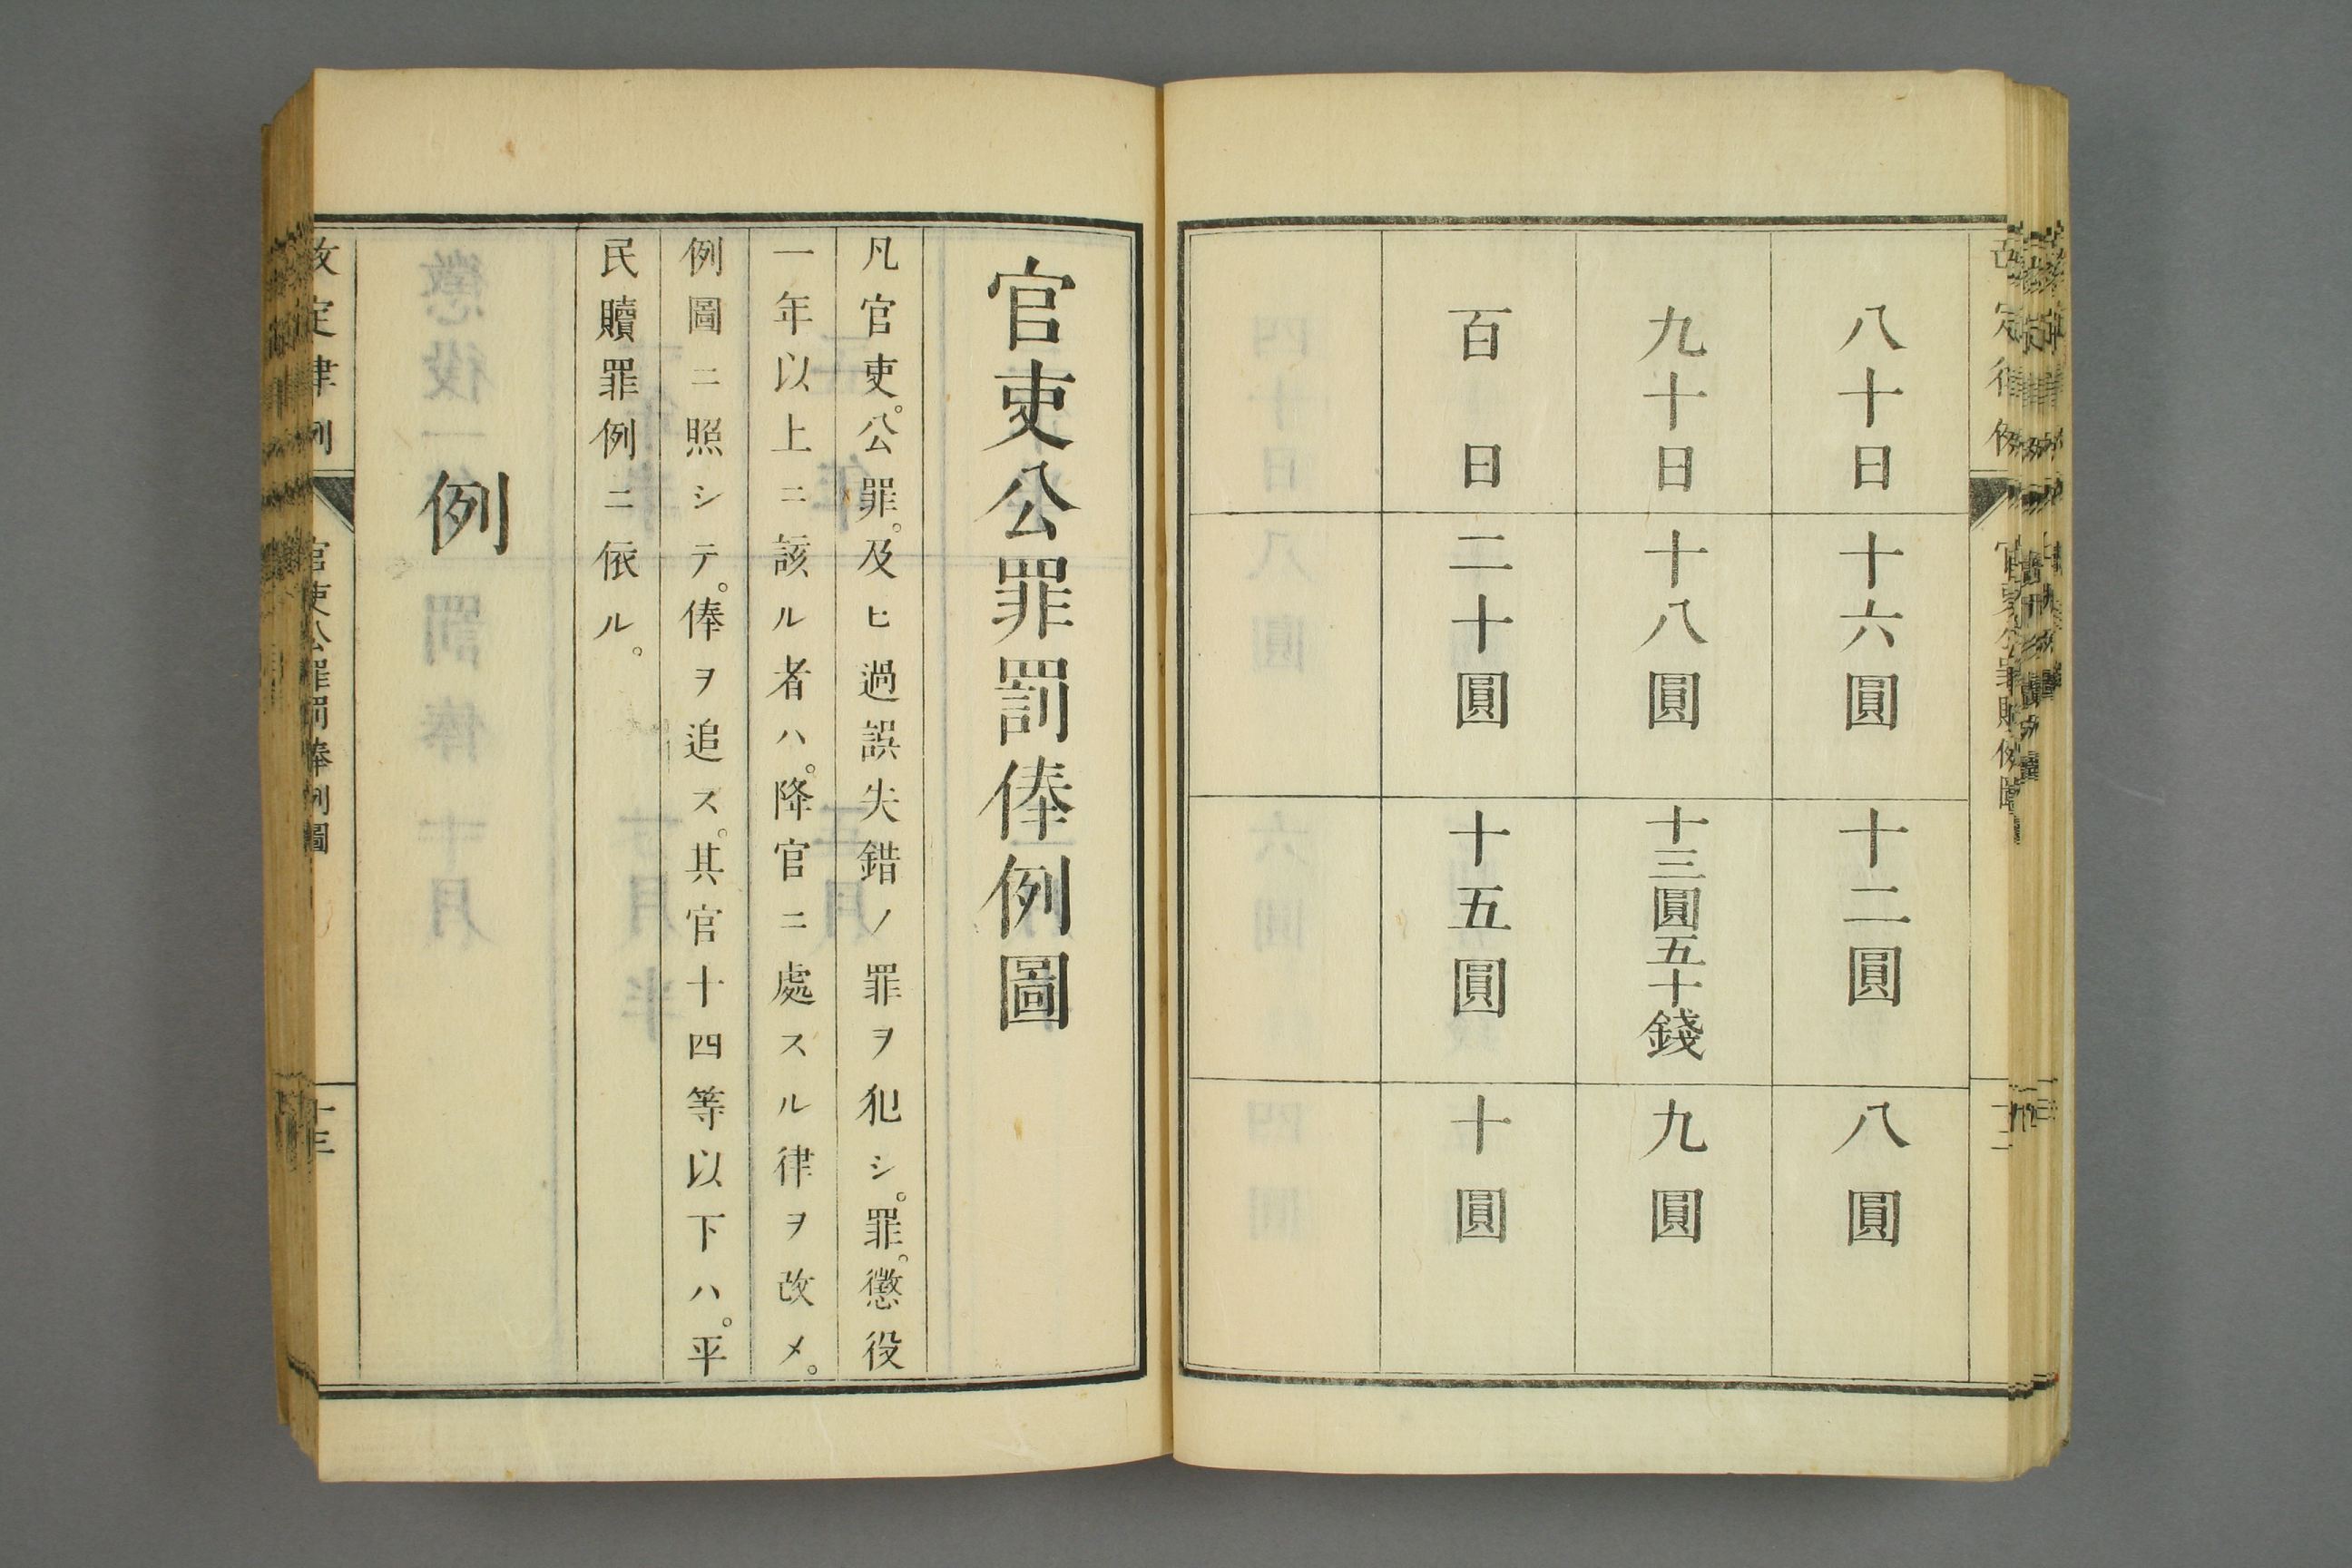 八十日 十六圓 十二圓 八圓
九十日 十八圓 十三圓五十錢 九圓
百日 二十圓 十五圓 十圓
官吏公罪罰俸例圖
凡官吏。公罪。及ヒ過誤失錯ノ罪ヲ犯シ。罪。懲役
一年以上ニ該ル者ハ。降官ニ處スル律ヲ改メ。
例圖ニ照シテ。俸ヲ追ス。其官十四等以下ハ。平
民贖罪例ニ依ル。
例
改定律例 官吏公罪罰俸例圖 十三